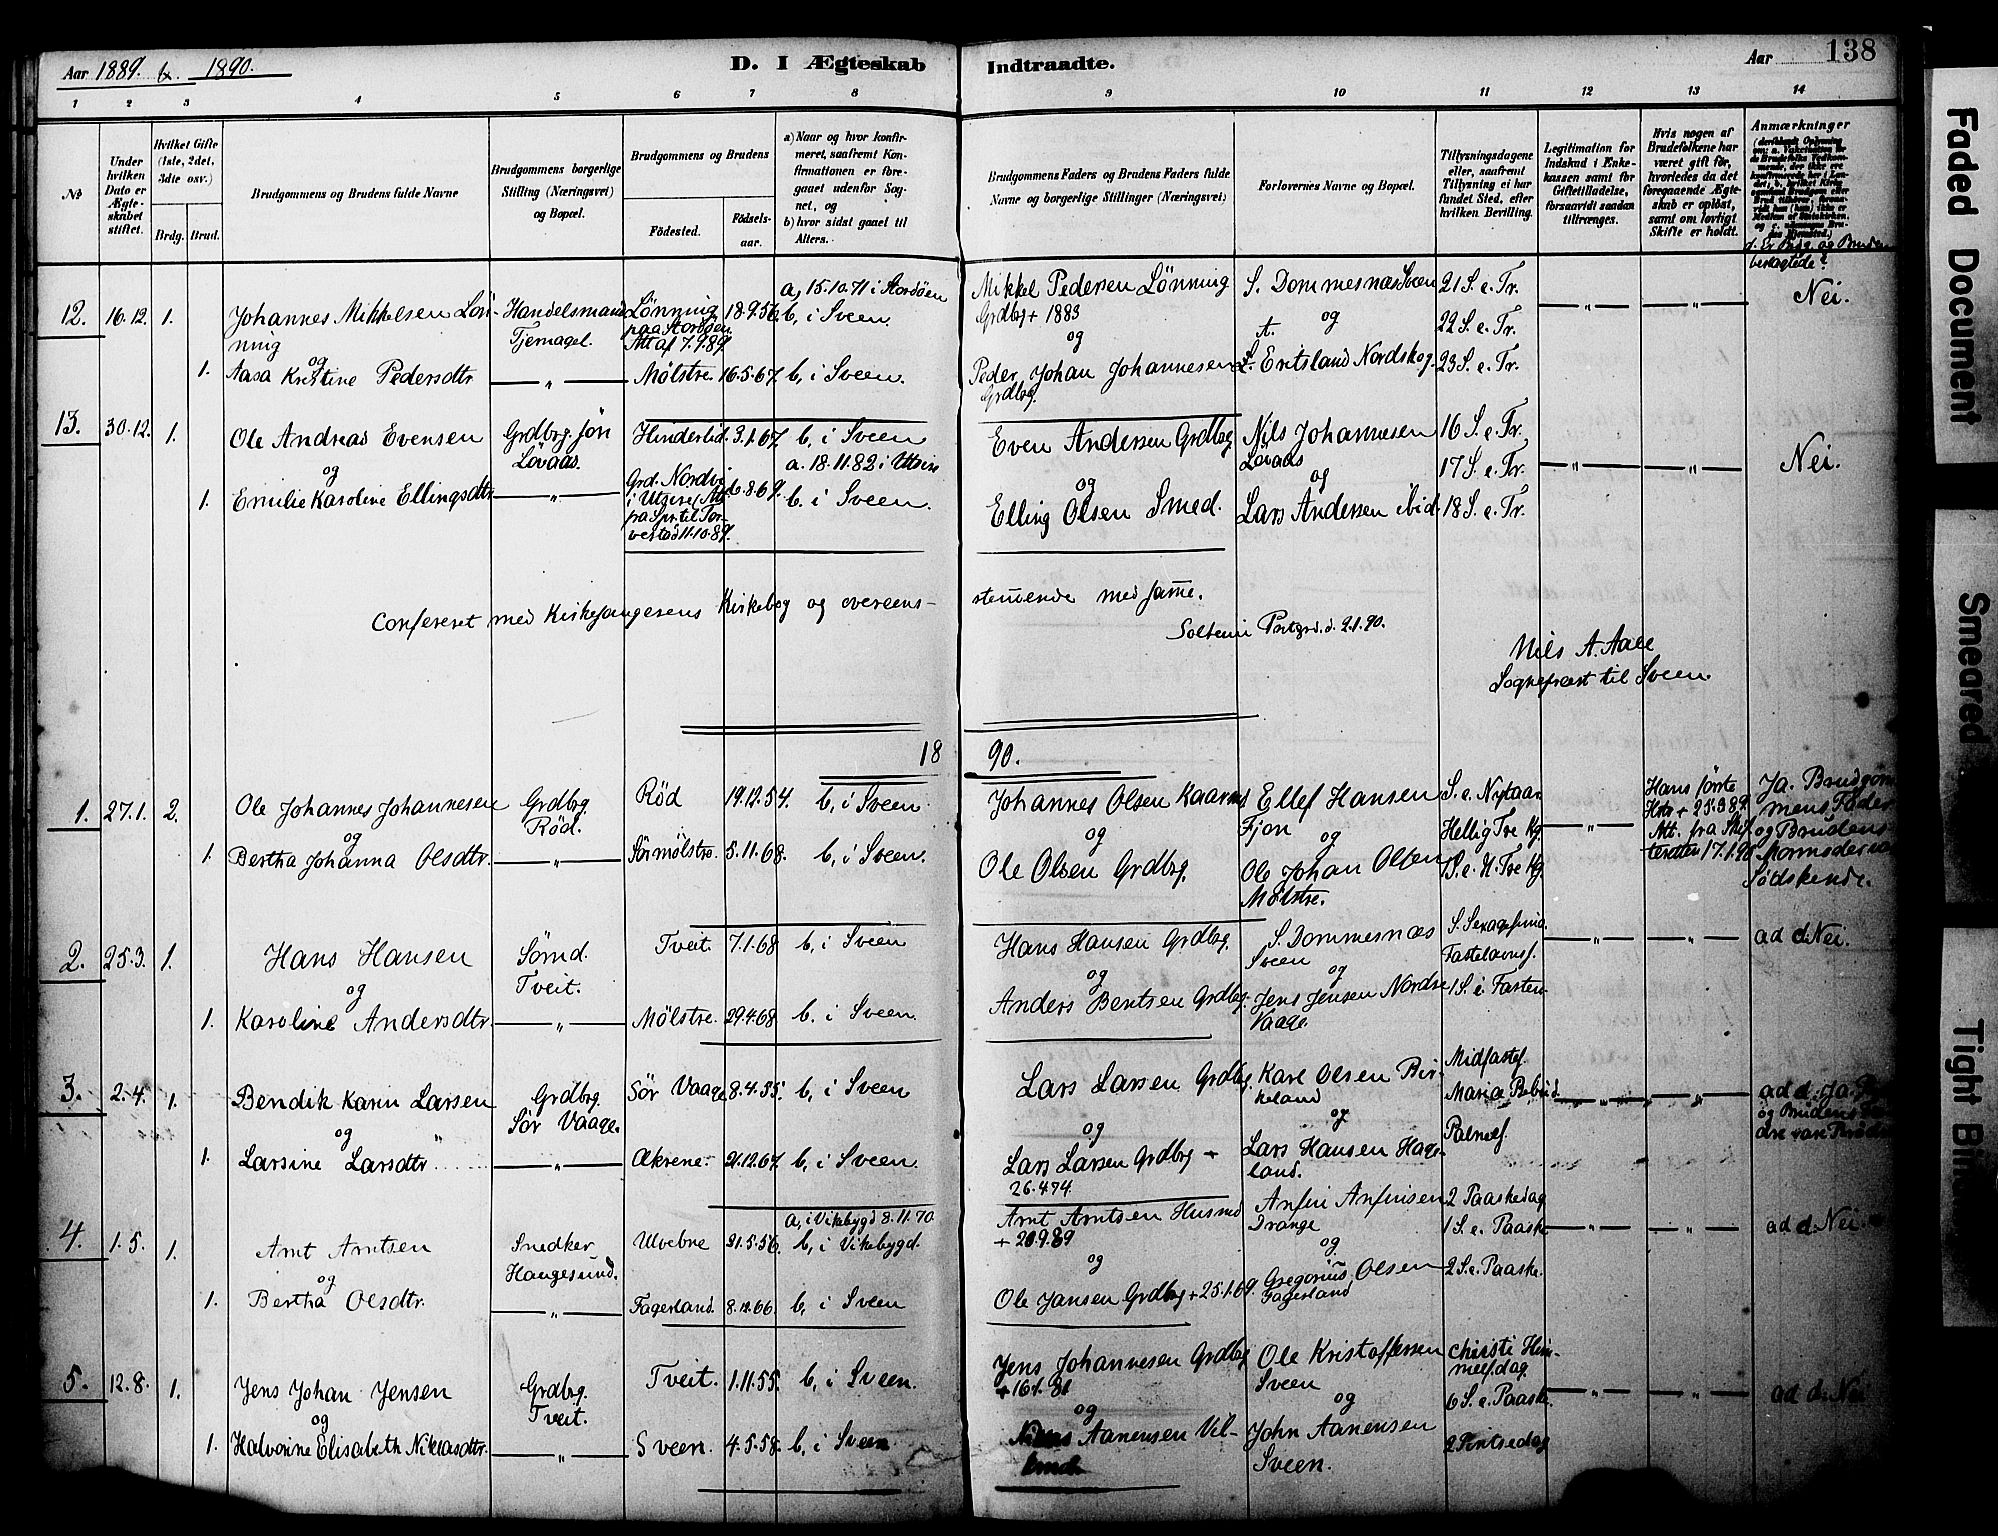 Aar 1889. & 1890.
D. I Ægteskab Indtraadte.
Aar
138
1 2 3 4 5 6 7 8 9 10 11 12 13 14
No
Under hvilken Dato er Ægteskabet stiftet.
Hvilket Gifte (1ste, 2det, 3die osv.)
Brdg. Brud.
Brudgommens og Brudens fulde Navne
Brudgommens borgerlige Stilling (Næringsvei) og Bopæl.
Brudgommens og Brudens
Födested.
Födselsaar.
a) Naar og hvor konfirmeret, saafremt Konfirmationen er foregaaet udenfor Sognet, og
b) hvor sidst gaaet til Alters.
Brudgommens Faders og Brudens Faders fulde Navne og borgerlige Stillinger (Næringsvei)
Forlovernes Navne og Bopæl.
Tillysningsdagene eller, saafremt Tillysning ei har fundet Sted, efter hvilken Bevilling.
Legitimation for Indskud i Enkekassen samt for Giftetilladelse, forsaavidt saadan tiltrænges.
Hvis nogen af Brudefolkene har været gift för, hvorledes da det foregaaende Ægteskab er oplöst, samt om lovligt Skifte er holdt.
Anmærkninger
d. Er Brdg. og Bruden beslægtede?
12. 16.12. 1. Johannes Mikkelsen Lönning
Handelsmand Tjernagel.
Lönning paa Stordöen Att af 7.9.89
18.9.56. a, 15.10.71 i Stordöen b, i Sveen.
Mikkel Pedersen Lönning Grdbg + 1883
S. Dommesnæs Sveen
21 S. e. Tr.
22 S. e. Tr.
23 S. e. Tr.
— " — — " — Nei.
og
1. Aasa Kristine Pedersdtr — " — Mölstre. 16.5.67. b, i Sveen.
og
Peder Johan Johannesen Grdbg.
og
L. Eritsland Nordskog.
13. 30.12. 1. Ole Andreas Evensen
Grdbrg. sön Lövaas.
Hinderlid. 3.1.67. b, i Sveen
Even Andersen Grdbg
Nils Johannesen Lövaas
16 S. e. Tr.
17 S. e. Tr.
18 S. e. Tr.
— " — — " — Nei.
og
1. Emilie Karoline Ellingsdtr — " —
Grd. Nordvi i Utsire, Att. fra Spr. til Torvestad 11.10.89.
6.8.69. a. 18.11.83 i Utsire b. i Sveen.
og
Elling Olsen Smed.
og
Lars Andersen ibid.
Confereret med Kirkesangerens Kirkebog og overeensstemmende med samme.
Soltemi Prstgrd. d. 2.1.90.
Nils A. Aall
Sognepræst til Sveen
1890.
1. 27.1. 2. Ole Johannes Johannesen
Grdbrg. Röd.
Röd 19.12.54. b, i Sveen.
Johannes Olsen Kaarms
Ellef Hansen Fjon
S. e. Nytaar
Hellig Tre Kg.
1 S. e. H. Tre Kg.
— " —
Hans förste Hkr + 25.3.89. Att. fra Skifteretten 17.1.90
Ja. Brudgommens Fader og Brudens Mormoder var Södskende.
og
1. Bertha Johanna Olsdtr. — " — Sör mölstre. 5.11.68. b, i Sveen.
og
Ole Olsen Grdbrg.
og
Ole Johan Olsen Mölstre.
2. 25.3. 1. Hans Hansen
Sömd. Tveit.
Tveit. 7.1.68. b, i Sveen
Hans Hansen Grdbrg.
S. Dommesnæs Sveen
S. Sexagesima
Fastelavnsf.
1 S. i Fasten
— " — — " — ad d. Nei.
og
1. Karoline Andersdtr. — " — Mölstre. 29.4.68. b. i Sveen.
og
Anders Bentsen Grdbg.
og
Jens Jensen Nordre Vaage.
3. 2.4. 1. Bendik Karin Larsen
Grdbrg. Sör Vaage.
Sör Vaage 8.4.55. b, i Sveen
Lars Larsen Grdbg.
Karl Olsen Birkeland
Midfastef.
Maria Bebud.
Palmef.
— " — — " —
ad d. Ja.
og Brudens
og
1. Larsine Larsdtr. — " — Ækrene. 21.12.67. b, i Sveen.
og
Lars Larsen Grdbrg + 26.4.74.
og
Lars Hansen Hageland.
4. 1.5. 1. Arnt Arntsen
Snedker Haugesund.
Ulvebne 21.5.56. a, i Vikebygd 8.11.70 b, i Vikebygd.
Arnt Arntsen Husmd + 20.9.89
Anfin Anfinsen Drange
2 Paaskedag
1 S. e. Paaske
2 S. e. Paaske.
— " — — " — ad d. Nei
og
1. Bertha Olsdtr. — " — Fagerland. 8.12.66. b, i Sveen
og
Ole Jansen Grdbg + 25.1.69.
og
Gregorius Olsen Fagerland
5. 12.8. 1. Jens Johan Jensen
Grdbg. Tveit.
Tveit. 1.11.55. b, i Sveen.
Jens Johannesen Grdbg
Ole Kristoffersen Sveen
Christi Himmelfdag.
6 S. e. Paaske
2 Pintsedag
— " — — " — ad d. Nei
og
1. Halvorine Elisabeth Niklasdtr. — " — Sveen. 4.5.58. b, i Sveen
og
Aanensen
og
John Aanensen Sveen.
Faded Document
Smeared
Tight Bin